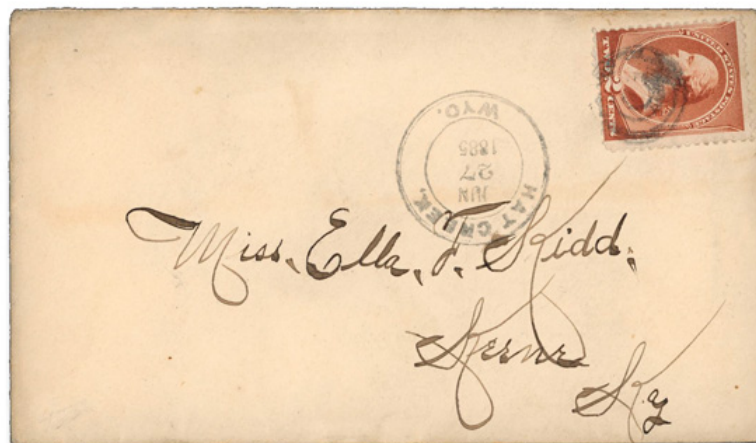 UNITED STATES POSTAGE
TWO 2 CENTS
HAT CREEK,
JUN
27
1885
WYO.
Miss. Ella. T. Kidd.
Ky